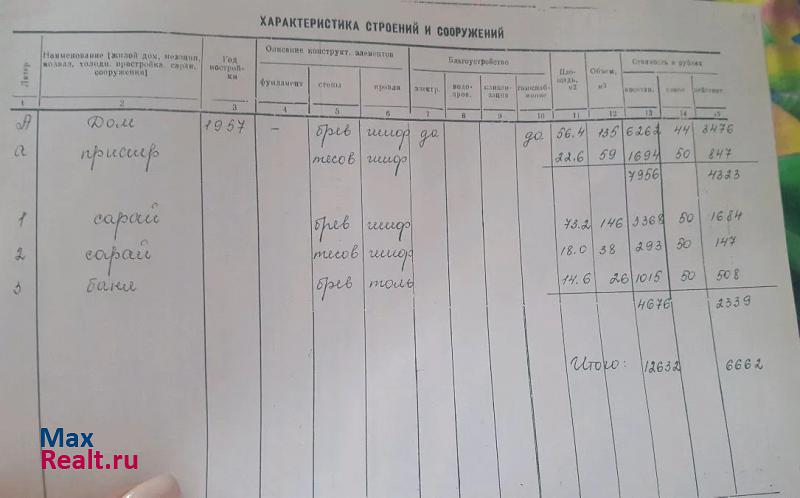 ХАРАКТЕРИСТИКА СТРОЕНИЙ И СООРУЖЕНИЙ
Литер
Наименование [жилой дом, мезонин, подвал, холодн. пристройка, сараи, сооружения]
Год постройки
Описание конструкт. элементов
фундамент стены кровля
Благоустройство
электр. водопров. канализация
Площадь, м2
Объем, м3
Стоимость в рублях
восстан. износ действит.
1 2 3 4 5 6 7 8 9 10 11 12 13 14 15
А Дом 1957 – брев шифр да да 56.4 135 6262 44 3476
а пристр тесов шифр 22.6 59 1694 50 847
7956 4323
1 сарай брев шифр 73.2 146 3368 50 1684
2 сарай тесов шифр 18.0 38 293 50 147
3 баня брев толь 14.6 26 1015 50 508
4676 2339
Итого: 12632 6662
Max
Realt.ru